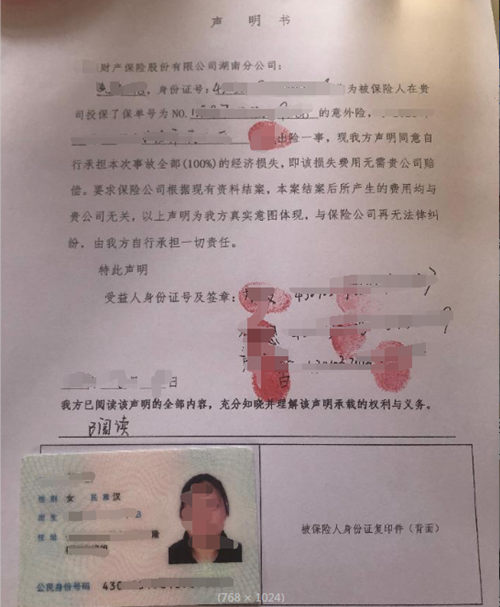 声 明 书
财产保险股份有限公司湖南分公司:
身份证号:4 为被保险人在贵
司投保了保单号为NO. 的意外险,
出险一事,现我方声明同意自
行承担本次事故全部(100%)的经济损失,即该损失费用无需贵公司赔
偿。要求保险公司根据现有资料结案,本案结案后所产生的费用均与
贵公司无关,以上声明为我方真实意图体现,与保险公司再无法律纠
纷,由我方自行承担一切责任。
特此声明
受益人身份证号及签章:
日
我方已阅读该声明的全部内容,充分知晓并理解该声明承载的权利与义务。
已阅读
性别 女 民族 汉
出生
住址 隆
公民身份号码 430
被保险人身份证复印件(背面)
(768 × 1024)